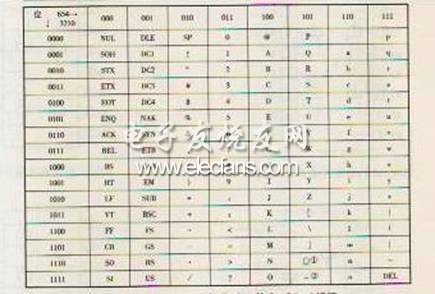 位 654→ 000 001 010 011 100 101 110 111
↓ 3210
0000 NUL DLE SP 0 @ P p
0001 SOH DC1 ! 1 A Q a q
0010 STX DC2 " 2 B R b r
0011 ETX DC3 # 3 C S c s
0100 EOT DC4 $ 4 D T d t
0101 ENQ NAK % 5 E U e u
0110 ACK SYN f v
0111 BEL ETB g w
1000 BS X h x
1001 HT EM ) 9 I Y i y
1010 LF SUB * : J Z j z
1011 VT ESC + ; K [ k
1100 FF FS , < L \ l
1101 CR GS - = M ] m
1110 SO RS . > N ① n ~
1111 SI US / ? O ② o DEL
电子发烧友网
www.elecfans.com